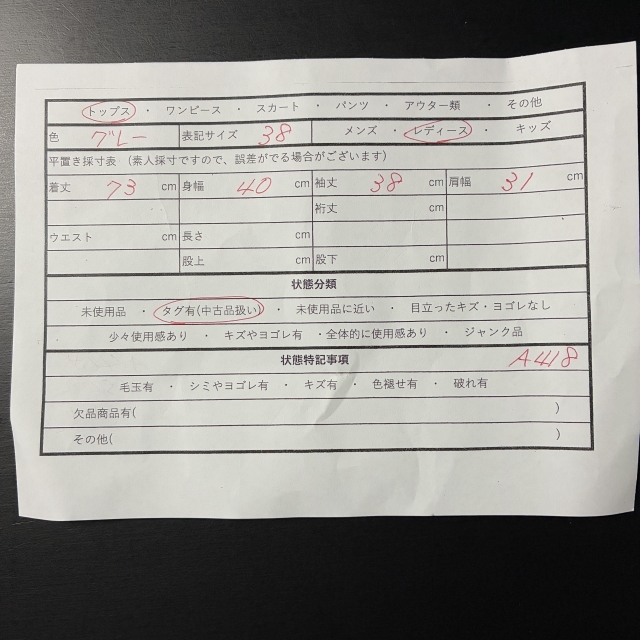 トップス ・ ワンピース ・ スカート ・ パンツ ・ アウター類 ・ その他
色 グレー 表記サイズ 38 メンズ ・ レディース ・ キッズ
平置き採寸表 （素人採寸ですので、誤差がでる場合がございます）
着丈 73 cm 身幅 40 cm 袖丈 38 cm 肩幅 31 cm
裄丈 cm
ウエスト cm 長さ cm
股上 cm 股下 cm
状態分類
未使用品 ・ タグ有(中古品扱い) ・ 未使用品に近い ・ 目立ったキズ・ヨゴレなし
少々使用感あり ・ キズやヨゴレ有 ・全体的に使用感あり ・ ジャンク品
状態特記事項 A418
毛玉有 ・ シミやヨゴレ有 ・ キズ有 ・ 色褪せ有 ・ 破れ有
欠品商品有( )
その他( )